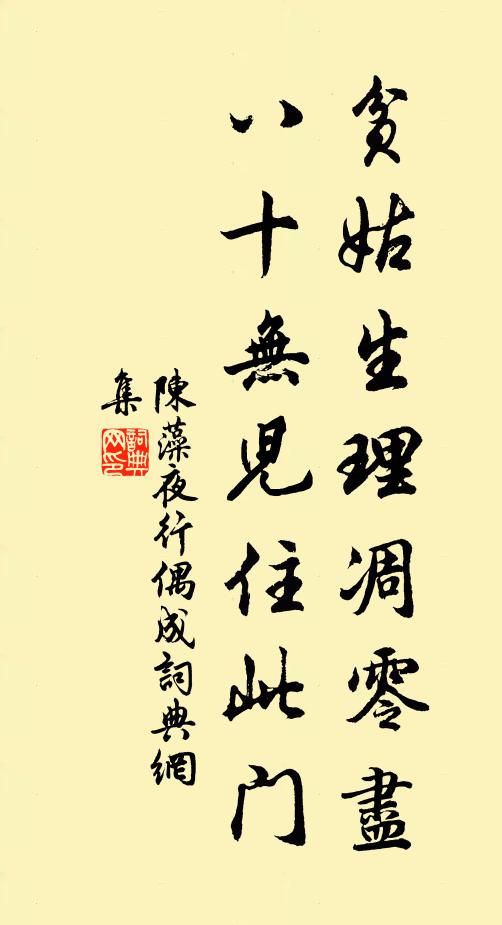 貧姑生理凋零盡
八十無児住此门
陳藻夜行偶成詞典網
集
詞典
网印